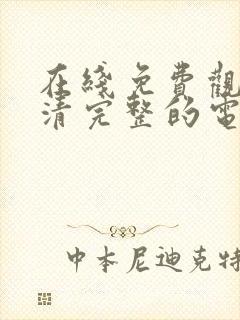 在綫免費觀
清完整的電
中本尼迪克特